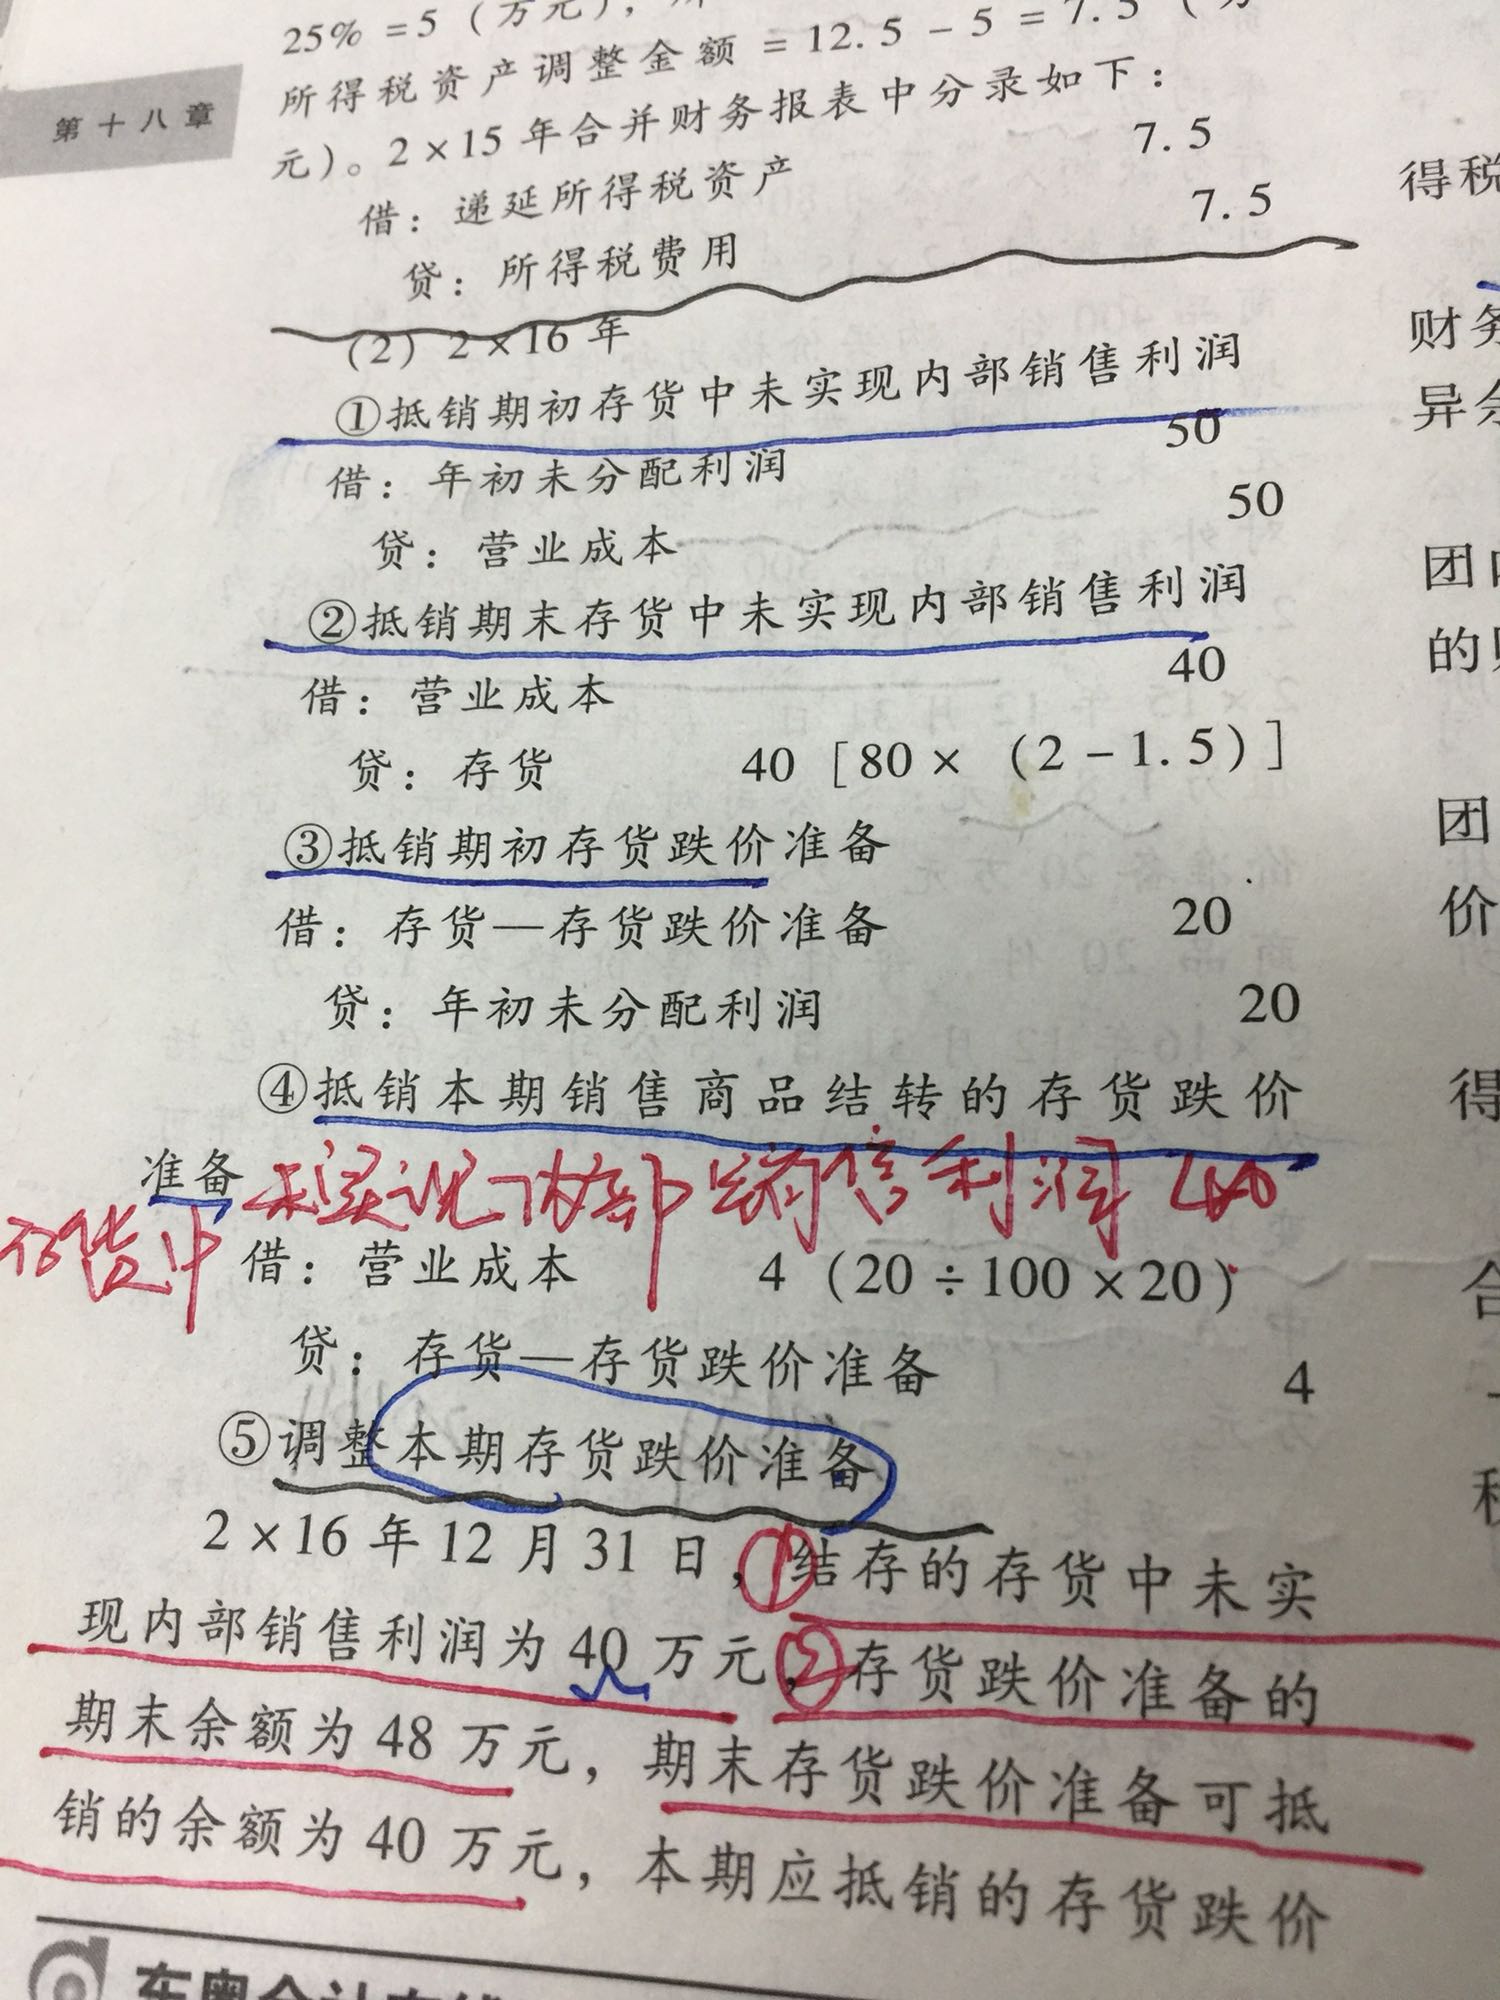 25% =5（万元），
所得税资产调整金额 =12.5-5=7.5（
元）。2×15年合并财务报表中分录如下：
借：递延所得税资产 7.5
贷：所得税费用 7.5
（2）2×16年
①抵销期初存货中未实现内部销售利润
借：年初未分配利润 50
贷：营业成本 50
②抵销期末存货中未实现内部销售利润
借：营业成本 40
贷：存货 40［80×（2-1.5）］
③抵销期初存货跌价准备
借：存货—存货跌价准备 20
贷：年初未分配利润 20
④抵销本期销售商品结转的存货跌价
准备
存货中未实现内部销售利润 40
借：营业成本 4（20÷100×20）
贷：存货—存货跌价准备 4
⑤调整本期存货跌价准备
2×16年12月31日，①结存的存货中未实
现内部销售利润为40万元，②存货跌价准备的
期末余额为48万元，期末存货跌价准备可抵
销的余额为40万元，本期应抵销的存货跌价
第十八章
得税
财务
异
团
的
团
价
得
合
东奥会计在线